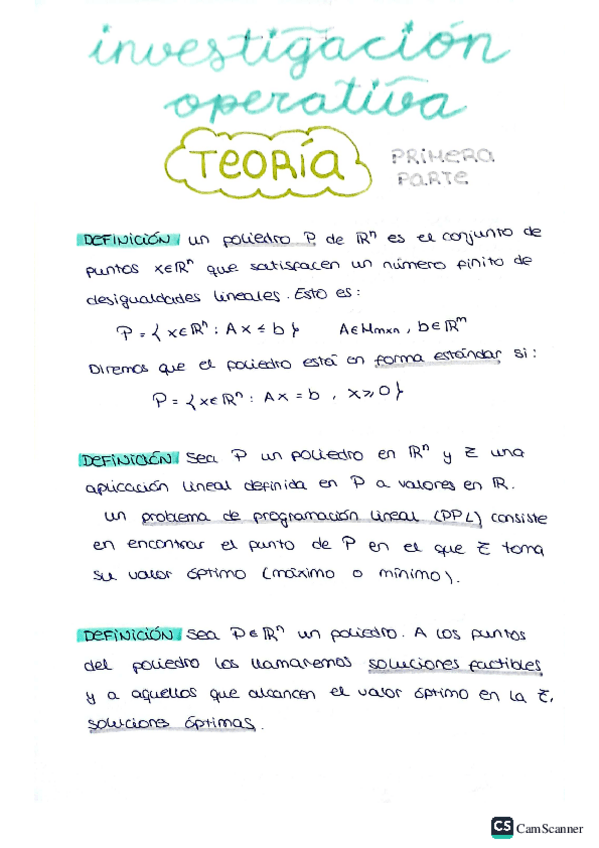 investigación
operativa
TEORÍA
PRIMERA
PARTE
DEFINICIÓN un poliedro P de ℝⁿ es el conjunto de
puntos x∈ℝⁿ que satisfacen un número finito de
desigualdades lineales. Esto es:
P = { x∈ℝⁿ : Ax ≤ b } A∈Mmxn , b∈ℝᵐ
Diremos que el poliedro está en forma estándar si:
P = { x∈ℝⁿ : Ax = b , x ≥ 0 }
DEFINICIÓN Sea P un poliedro en ℝⁿ y z una
aplicación lineal definida en P a valores en ℝ.
un problema de programación lineal (PPL) consiste
en encontrar el punto de P en el que z toma
su valor óptimo (máximo o mínimo).
DEFINICIÓN Sea P∈ℝⁿ un poliedro. A los puntos
del poliedro los llamaremos soluciones factibles
y a aquellos que alcancen el valor óptimo en la z,
soluciones óptimas.
CS CamScanner